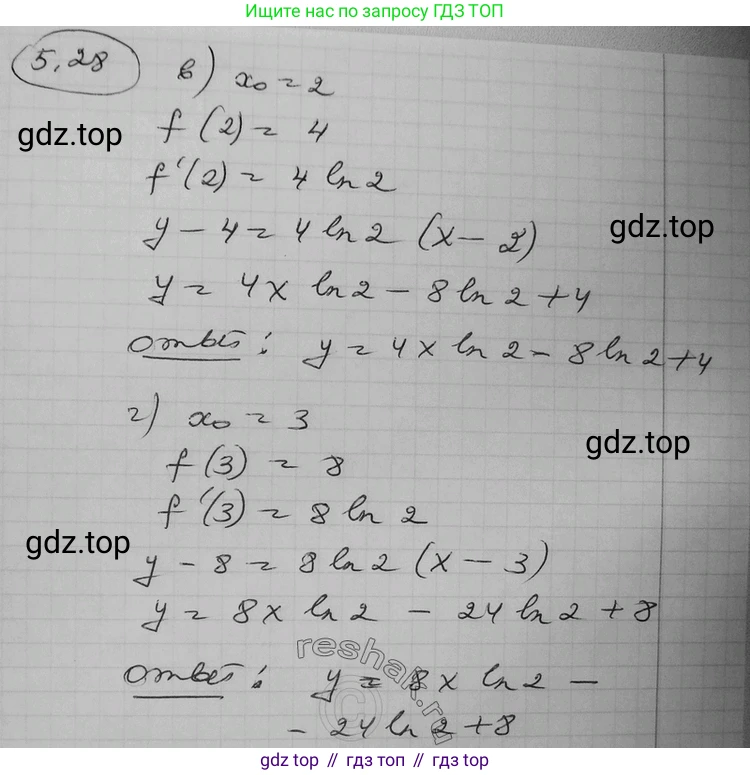 Ищите нас по запросу ГДЗ ТОП
5.28
в) x₀ = 2
gdz.top
f(2) = 4
f'(2) = 4 ln 2
gdz.top
y - 4 = 4 ln 2 (x - 2)
y = 4x ln 2 - 8 ln 2 + 4
Ответ: y = 4x ln 2 - 8 ln 2 + 4
г) x₀ = 3
gdz.top
f(3) = 8
f'(3) = 8 ln 2
gdz.top
y - 8 = 8 ln 2 (x - 3)
y = 8x ln 2 - 24 ln 2 + 8
reshak.ru
Ответ: y = 8x ln 2 -
- 24 ln 2 + 8
gdz top // гдз топ // гдз top